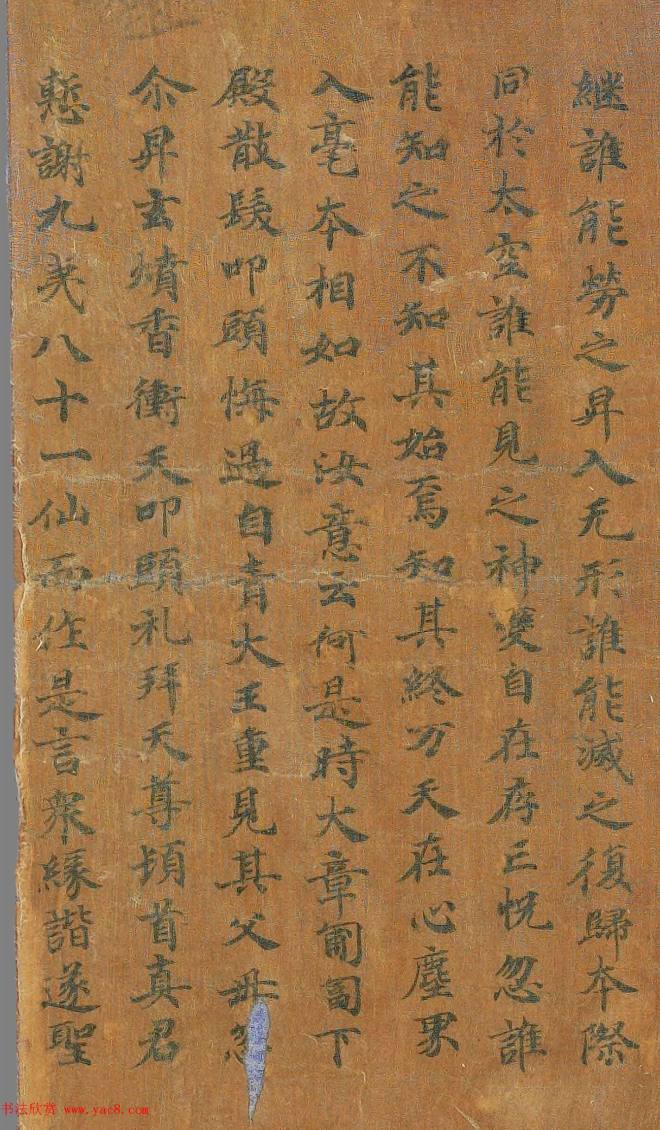 継誰能勞之昇入无形誰能滅之復歸本際
同於太空誰能見之神變自在存亡恍忽誰
能知之不知其始焉知其終万天在心塵界
入毫本相如故汝意云何是時大章匍匐下
殿散髮叩頭悔過自責大王重見其父母忽
尒昇玄燌香衝天叩頭礼拜天尊頓首真君
慙謝九炁八十一仙而作是言衆緣諧遂聖
书法欣赏 www.yac8.com